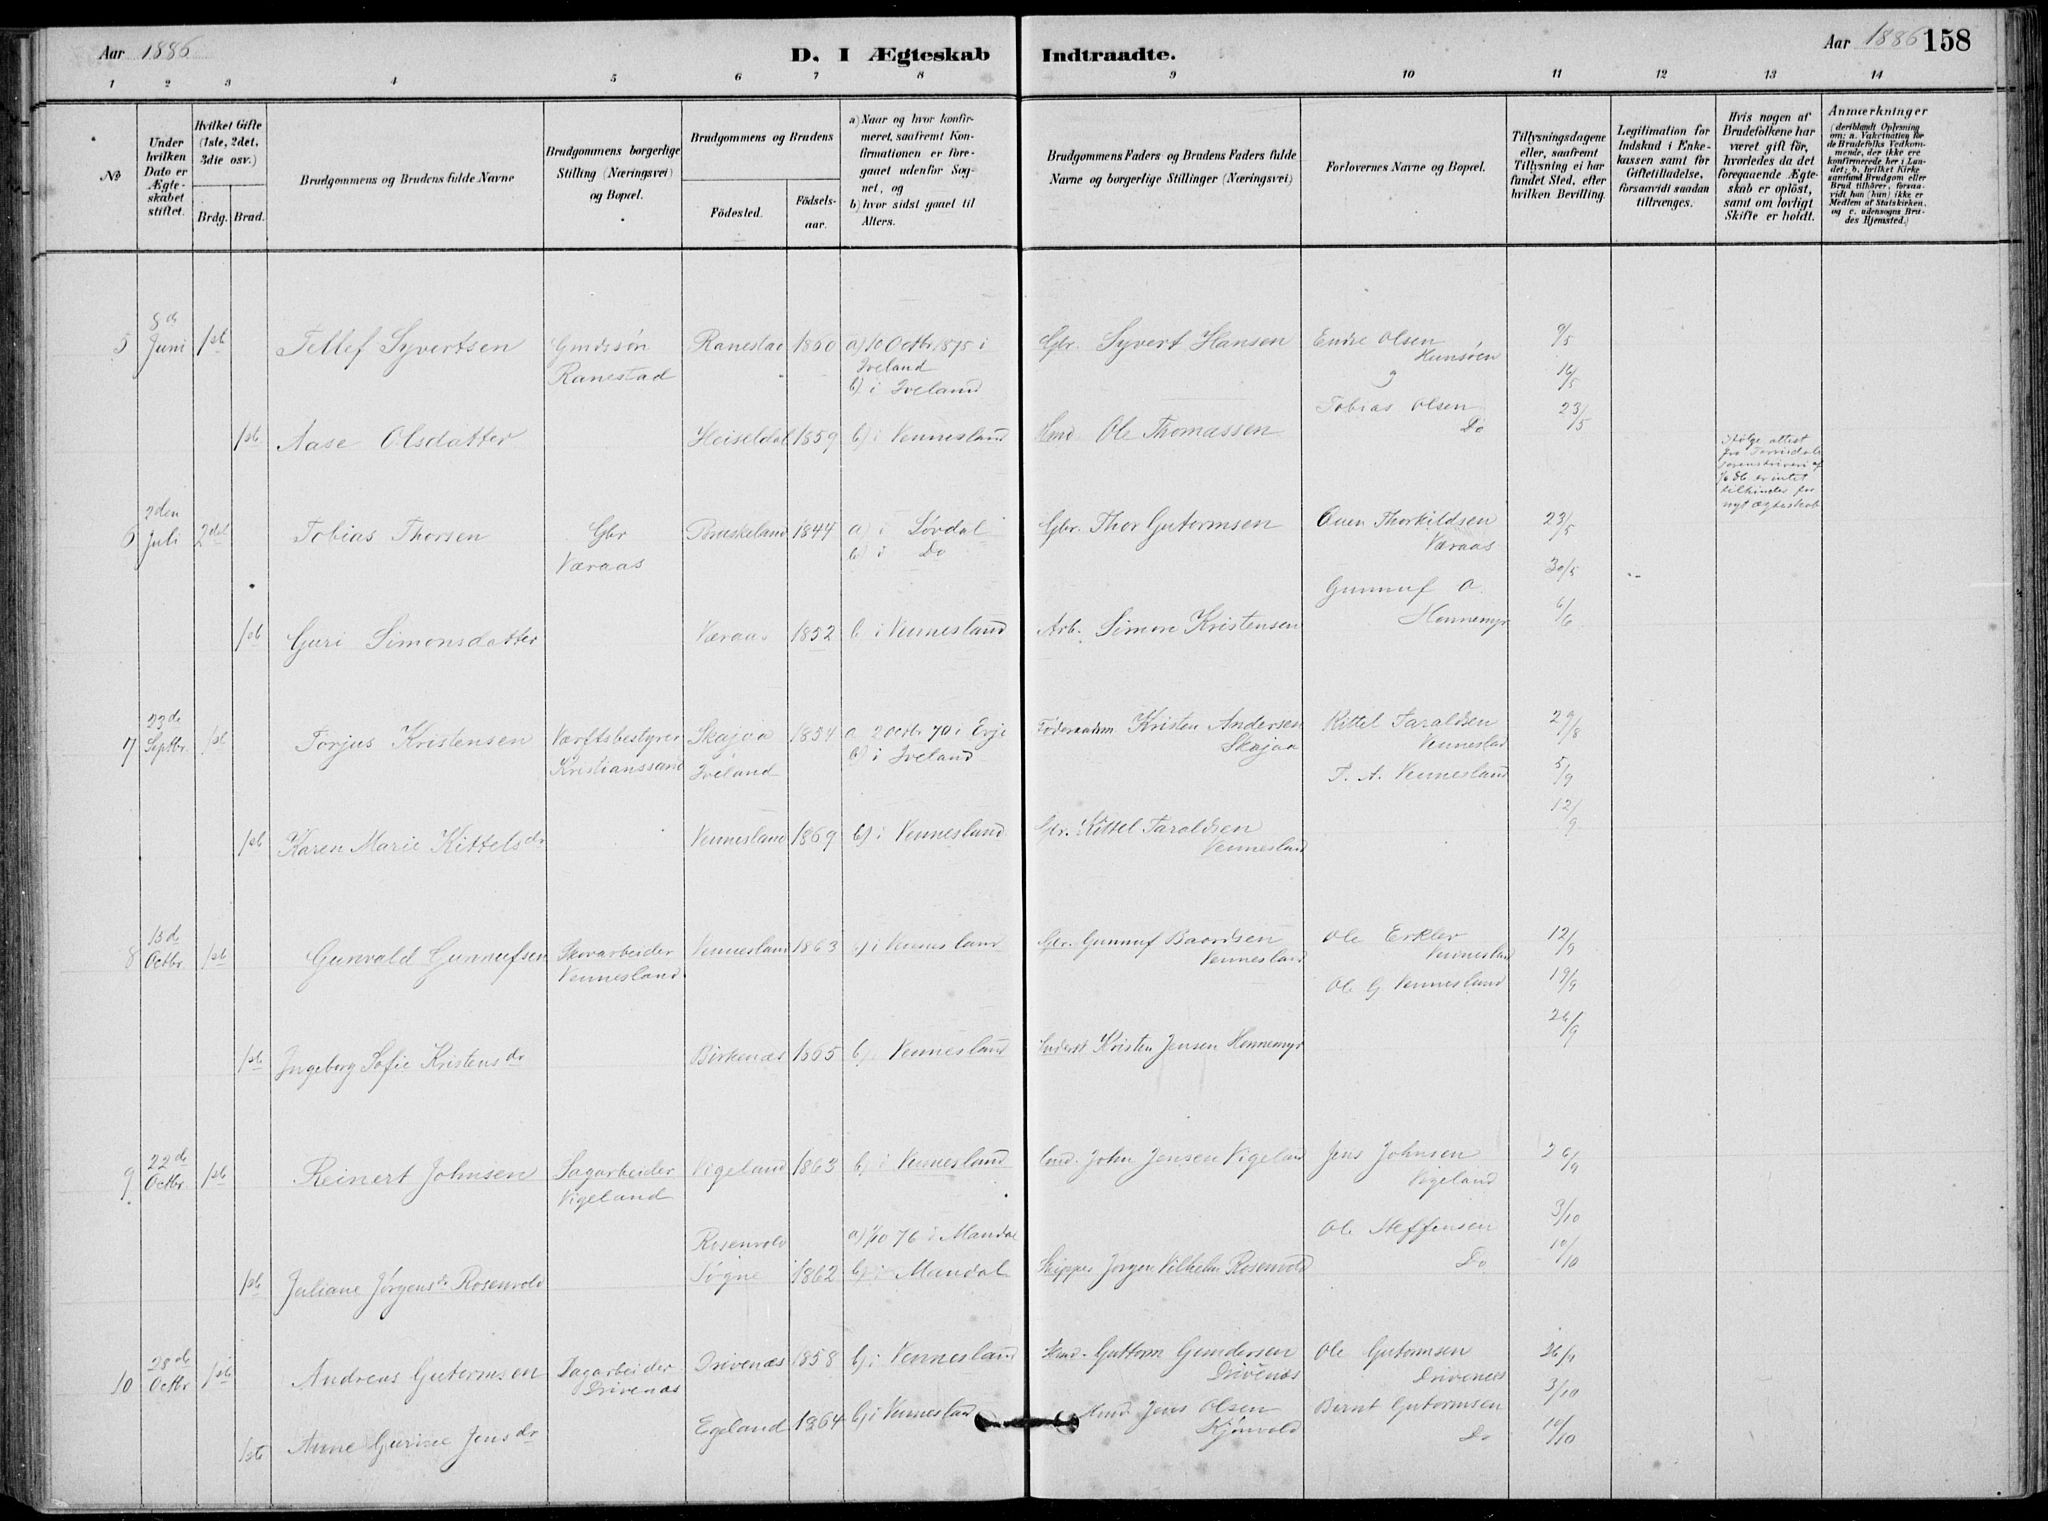 Aar 1886
D. I Ægteskab Indtraadte.
Aar 1886 158
1 2 3 4 5 6 7 8 9 10 11 12 13 14
No
Under hvilken Dato er Ægteskabet stiftet.
Hvilket Gifte (1ste, 2det, 3die osv.)
Brdg. Brud.
Brudgommens og Brudens fulde Navne
Brudgommens borgerlige Stilling (Næringsvei) og Bopæl.
Brudgommens og Brudens
Fødested.
Fødsels-aar.
a) Naar og hvor konfirmeret, saafremt Konfirmationen er foregaaet udenfor Sognet, og
b) hvor sidst gaaet til Alters.
Brudgommens Faders og Brudens Faders fulde Navne og borgerlige Stillinger (Næringsvei)
Forlovernes Navne og Bopæl.
Tillysningsdagene eller, saafremt Tillysning ei har fundet Sted, efter hvilken Bevilling.
Legitimation for Indskud i Enkekassen samt for Giftetilladelse, forsaavidt saadan tiltrænges.
Hvis nogen af Brudefolkene har været gift før, hvorledes da det foregaaende Ægteskab er opløst, samt om lovligt Skifte er holdt.
Anmærkninger (deriblandt Oplysning om: a. Vakcination for de Brudefolks Vedkommende, der ikke ere konfirmerede her i Landet; b. hvilket Kirkesamfund Brudgom eller Brud tilhører, forsaavidt han (hun) ikke er Medlem af Statskirken, og c. udensogns Brudes Hjemsted.)
5 8de Juni 1ste Tellef Syvertsen Gmdssøn Ranestad Ranestad 1860 a) 10 Octbr 1875 i Iveland b) i Iveland Gbr. Syvert Hansen Endre Olsen Hunsøen 9/5
g 16/5
Tobias Olsen Do 23/5
1ste Aase Olsdatter Heiseldal 1859 b) i Vennesland Hmd Ole Thomassen
ifølge attest fra Torrisdals Sorenskriveri af er intet tilhinder for nyt ægteskab
6 2den Juli 2det Tobias Thorsen Gbr Væraas Bruskeland 1844 a) i Løvdal b) i Do Gbr. Thor Gutormsen Ouen Thorkildsen Væraas 23/5
30/5
Gunnuf O. Honnemyr 6/6
1ste Guri Simonsdatter Væraas 1852 b i Vennesland Arb. Simon Kristensen
7 23de Septbr. 1ste Torjus Kristensen Værftsbestyrer Kristianssand Skajaa Iveland 1854 a 2 octbr 70 i Evje b) i Iveland Føderaadsm Kristen Andersen Skajaa Kittel Taraldsen Vennesland 29/8
T. A. Vennesland 5/9
12/9
1ste Karen Marie Kittelsdr Vennesland 1869 b) i Vennesland Gbr. Kittel Taraldsen Vennesland
8 13de Octbr. 1ste Gunvald Gunnufsen Skovarbeider Vennesland Vennesland 1863 b) i Vennesland Gbr. Gunnuf Baardsen Vennesland Ole Erklev Vennesland 12/9
Ole G Vennesland 19/9
26/9
1ste Ingeborg Sofie Kristensdr Birkenæs 1865 b) i Vennesland Inderst Kristen Jensen Honnemyr
9 22de Octbr. 1ste Reinert Johnsen Sagarbeider Vigeland Vigeland 1863 b) i Vennesland Ind. John Jensen Vigeland Jens Johnsen Vigeland 26/9
Ole Steffensen Do 3/10
10/10
1ste Juliane Jørgensdr Rosenvold Rosenvold Søgne 1862 a) 1/10 76 i Mandal b) i Mandal Skipper Jørgen Vilhelm Rosenvold
10 28de Octbr 1ste Andreas Gutormsen Sagarbeider Drivenæs Drivenæs 1858 b) i Vennesland Hmd. Guttorm Gundersen Drivenæs Ole Gutormsen Drivenes 26/9
3/10
1ste Anne Gurine Jensdr Egeland 1864 b) i Vennesland Hmd. Jens Olsen Kjønvold Bernt Gutormsen Do 10/10